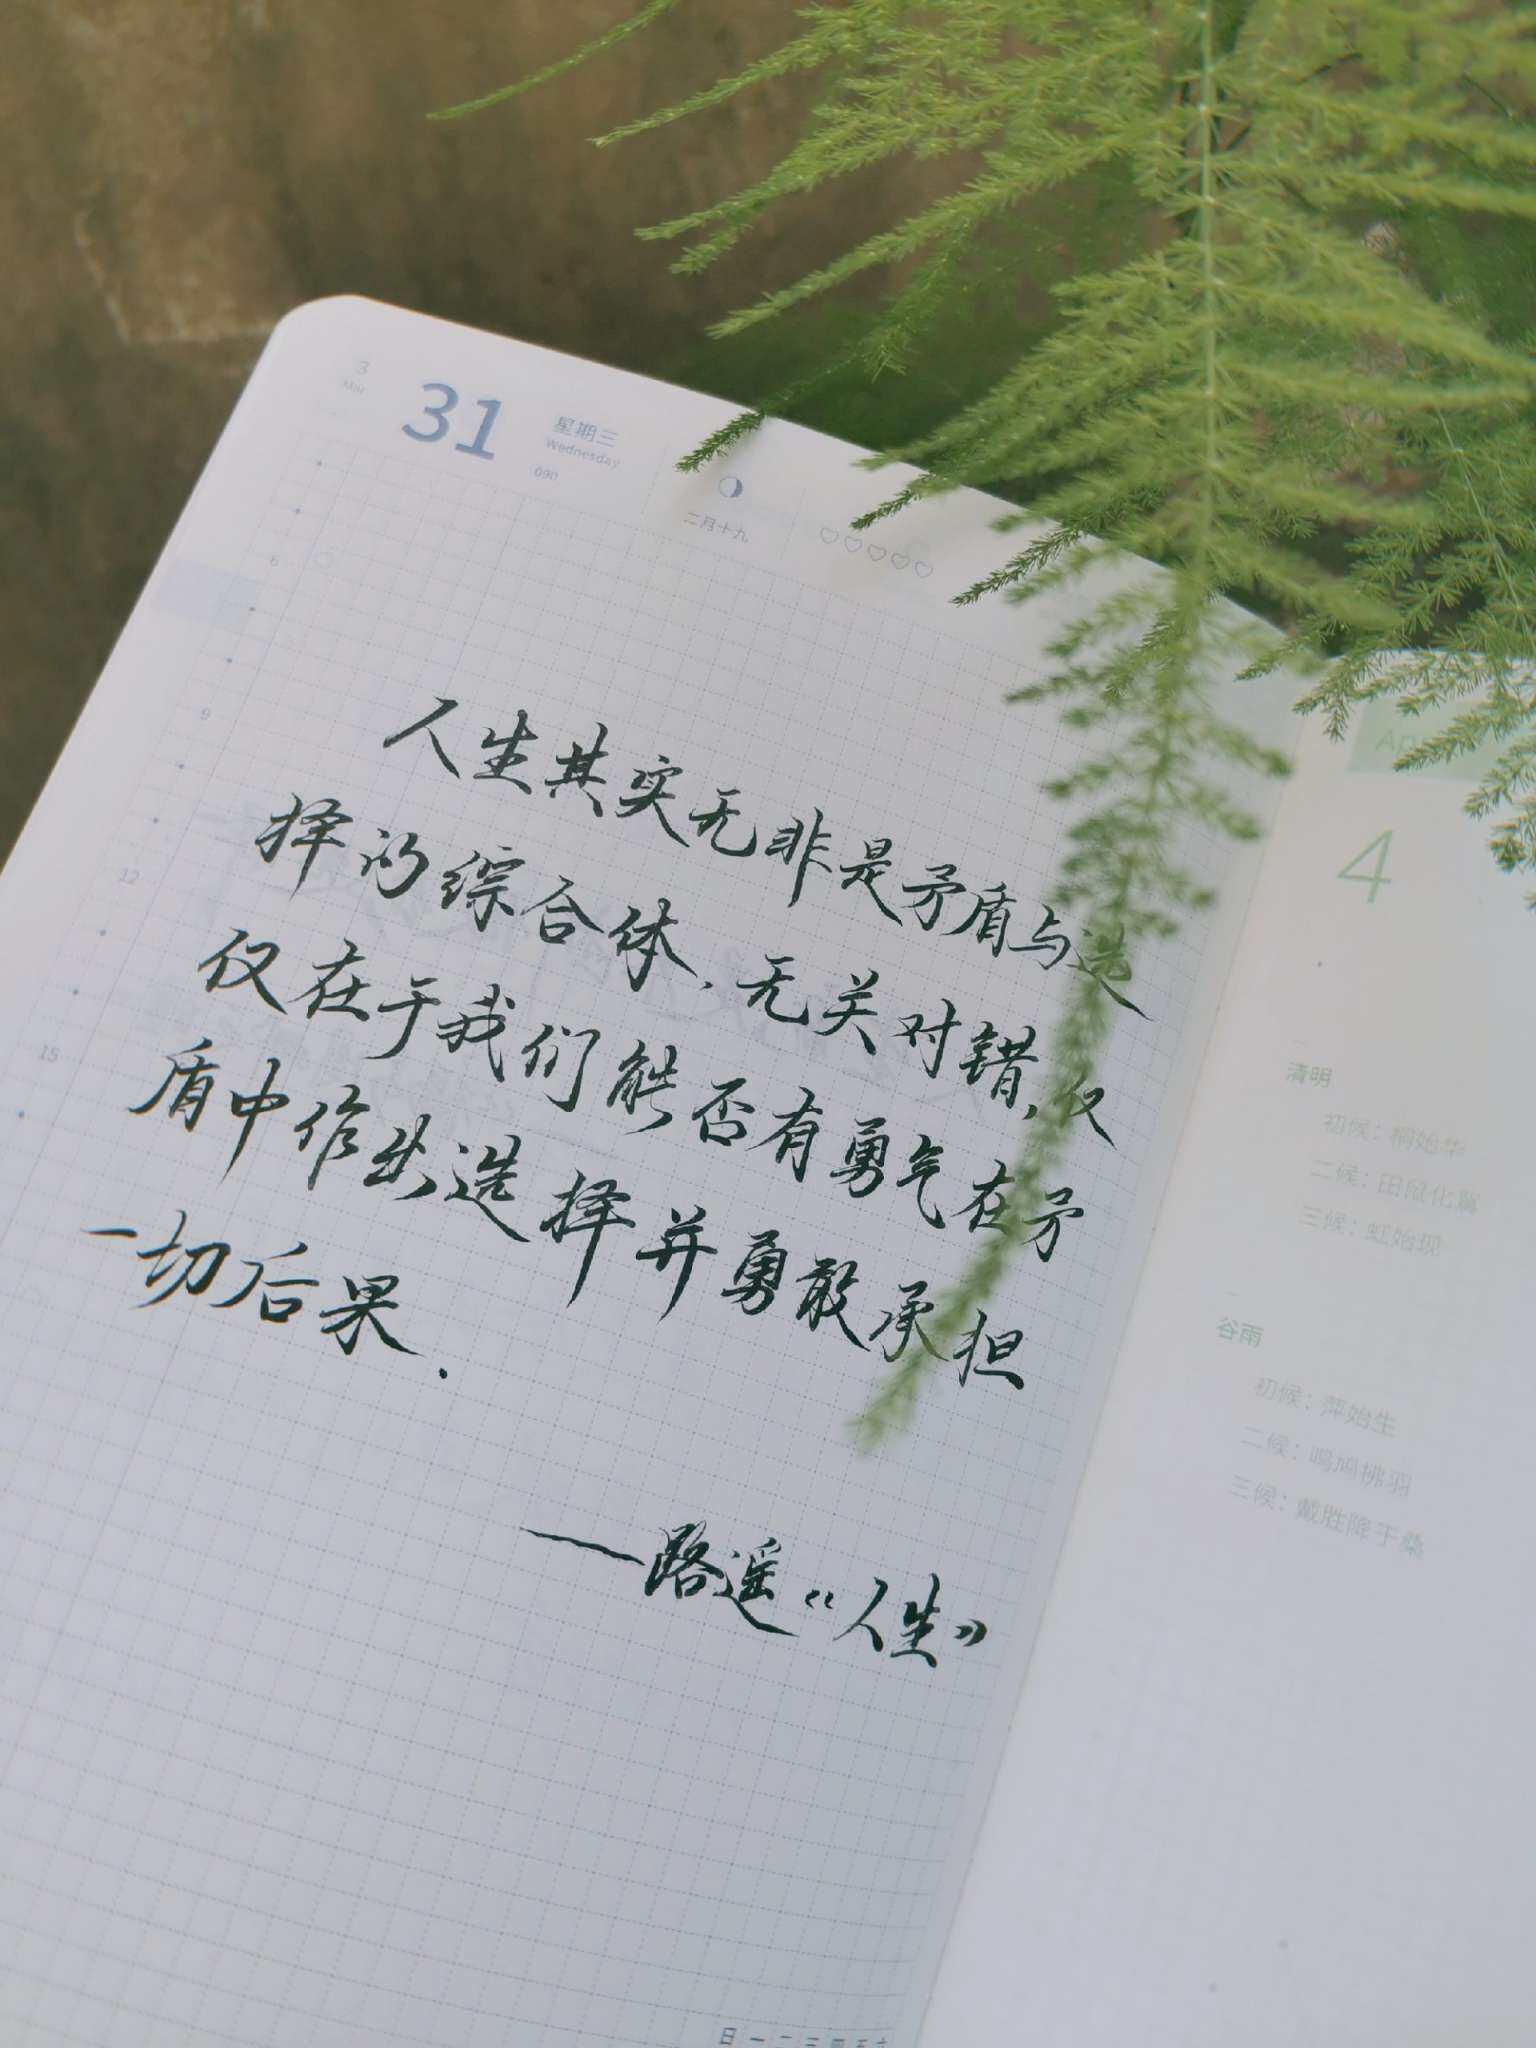 3
Mar
31
星期三
Wednesday
090
二月十九
6
9
12
15
人生其实无非是矛盾与选
择的综合体,无关对错,仅
仅在于我们能否有勇气在矛
盾中作出选择并勇敢承担
一切后果.
——路遥《人生》
日 一 二 三 四 五 六
4
清明
初候：桐始华
二候：田鼠化鴽
三候：虹始现
谷雨
初候：萍始生
二候：鸣鸠拂羽
三候：戴胜降于桑